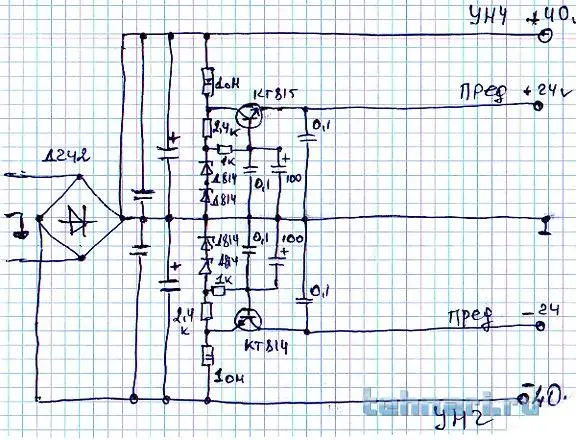 УНЧ +40.
1 ОН
КТ815
ПРЕД +24v
0,1
2,4
к
Д242
1К
Д814
Д814
0,1
100
Д814
0,1
100
Д814
1К
0,1
2,4
к
ПРЕД -24
КТ814
1 ОН
tehnari.ru
-40.
УНЧ